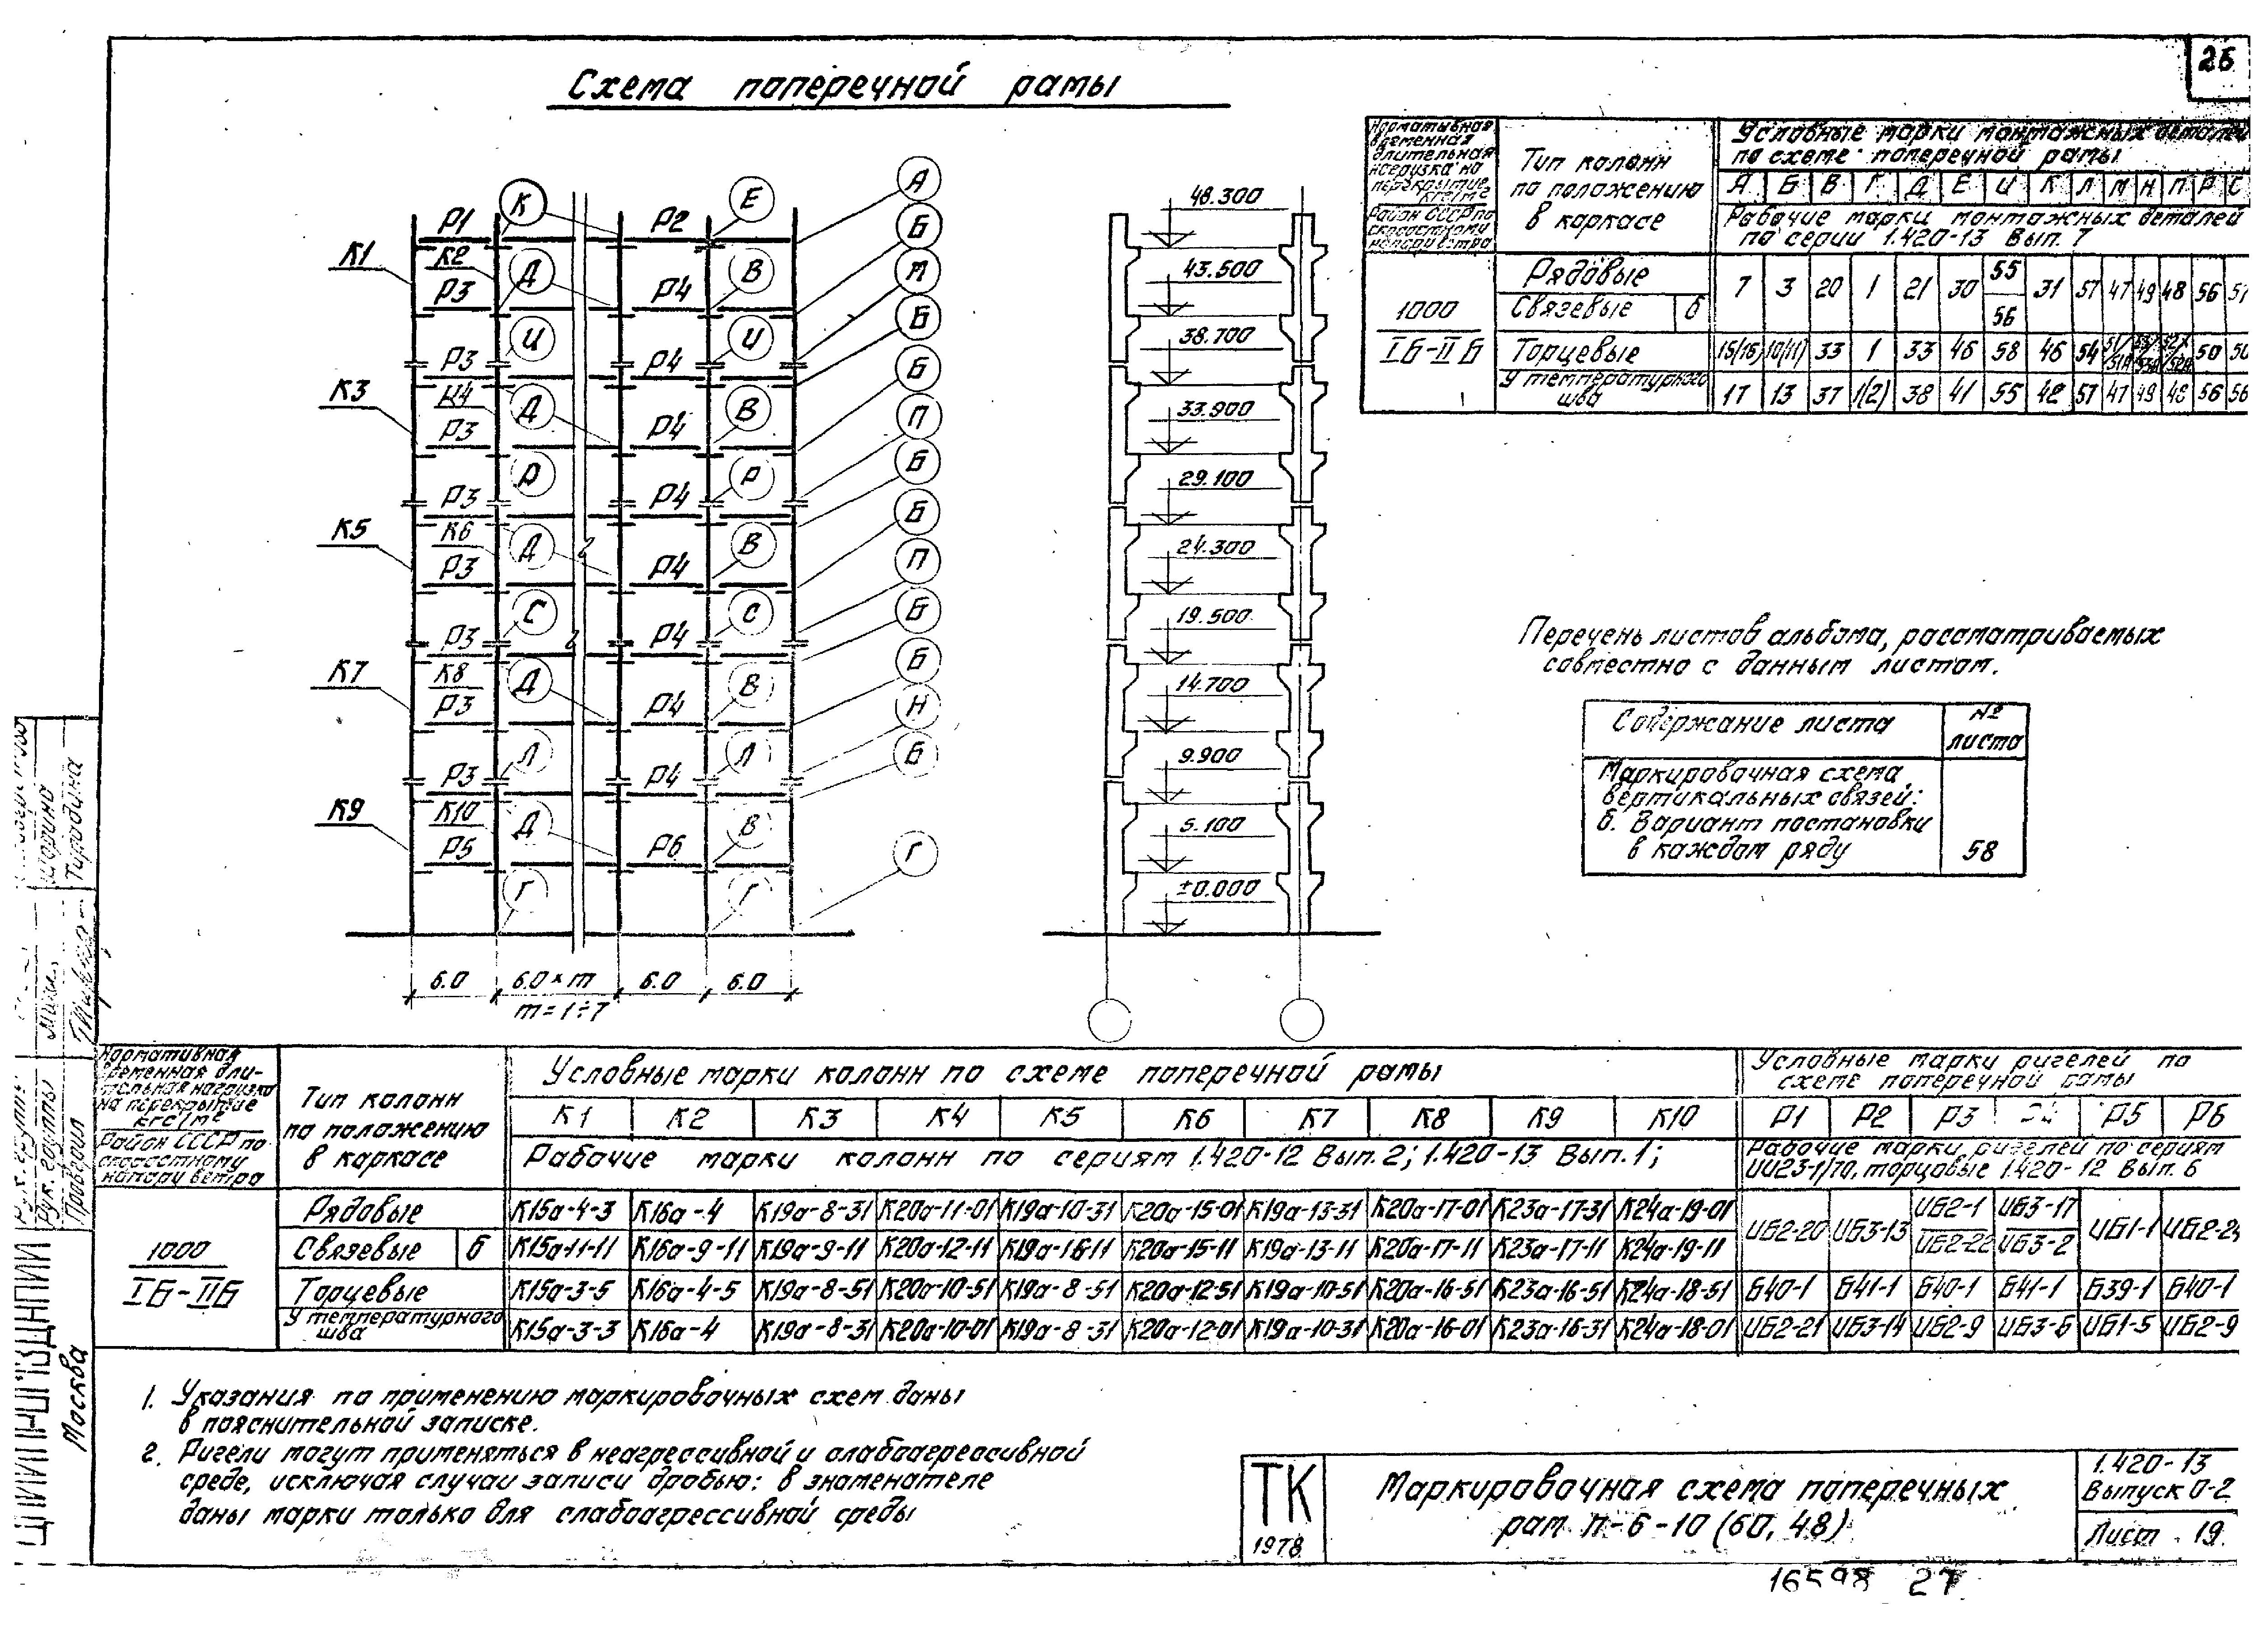 26
Схема поперечной рамы
Нормативная временная длительная нагрузка на перекрытие кгс/м²
Район СССР по скоростному напору ветра
Тип колонн по положению в каркасе
Условные марки монтажных деталей
по схеме поперечной рамы
А Б В Г Д Е И К Л М Н П Р С
Рабочие марки монтажных деталей
по серии 1.420-13 Вып. 7
1000
IБ-IIБ
Рядовые
Связевые б
7 3 20 1 21 30 55 56 31 57 47 49 48 56
Торцевые 15(16) 10(11) 33 1 33 46 58 46 54 50
У температурного шва 17 13 37 1(2) 38 41 55 42 57 47 49 48 56 56
Р1 К Р2 Е А
К1 К2 Д В Б
Р3 Р4 М
И И Б
Р3 Р4 Б
К3 К4 Д В П
Р3 Р4 Б
Р Р
Р3 Р4 Б
К5 К6 Д В
Р3 Р4 П
С С Б
Р3 Р4
К7 К8 Д В Б
Р3 Р4 Н
Л Л Б
Р3 Р4
К9 К10 Д В
Р5 Р6 Г
Г Г
6.0 6.0×m 6.0 6.0
m=1÷7
48.300
43.500
38.700
33.900
29.100
24.300
19.500
14.700
9.900
5.100
±0.000
Перечень листов альбома, рассматриваемых
совместно с данным листом.
Содержание листа № листа
Маркировочная схема
вертикальных связей:
б. Вариант постановки
в каждом ряду 58
Нормативная временная длительная нагрузка на перекрытие кгс/м²
Район СССР по скоростному напору ветра
Тип колонн по положению в каркасе
Условные марки колонн по схеме поперечной рамы
Условные марки ригелей по
схеме поперечной рамы
К1 К2 К3 К4 К5 К6 К7 К8 К9 К10 Р1 Р2 Р3 Р5 Р6
Рабочие марки колонн по сериям 1.420-12 Вып. 2; 1.420-13 Вып. 1;
Рабочие марки ригелей по сериям
ИИ23-1/70, торцовые 1.420-12 Вып. 6
1000
IБ-IIБ
Рядовые К15а-4-3 К16а-4 К19а-8-31 К20а-11-01 К19а-10-31 К20а-15-01 К19а-13-31 К20а-17-01 К23а-17-31 К24а-19-01
Связевые б К15а-11-11 К16а-9-11 К19а-9-11 К20а-12-11 К19а-16-11 К20а-15-11 К19а-13-11 К20а-17-11 К23а-17-11 К24а-19-11
ИБ2-20 ИБ3-13 ИБ2-1 ИБ2-22 ИБ3-17 ИБ3-2 ИБ1-1
Торцевые К15а-3-5 К16а-4-5 К19а-8-51 К20а-10-51 К19а-8-51 К20а-12-51 К19а-10-51 К20а-16-51 К23а-16-51 К24а-18-51 Б40-1 Б41-1 Б40-1 Б41-1 Б39-1 Б40-1
У температурного шва К15а-3-3 К16а-4 К19а-8-31 К20а-10-01 К19а-8-31 К20а-12-01 К19а-10-31 К20а-16-01 К23а-16-31 К24а-18-01 ИБ2-21 ИБ3-14 ИБ2-9 ИБ3-6 ИБ1-5 ИБ2-9
1. Указания по применению маркировочных схем даны
в пояснительной записке.
2. Ригели могут применяться в неагрессивной и слабоагрессивной
среде, исключая случаи записи дробью: в знаменателе
даны марки только для слабоагрессивной среды
Рук. группы
Проверил
Шорина
Москва
ТК
1978
Маркировочная схема поперечных
рам п-6-10 (60, 48)
1.420-13
Выпуск 0-2
Лист 19
16598 27